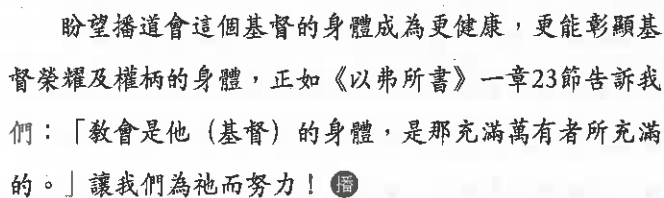 盼望播道會這個基督的身體成為更健康，更能彰顯基
督榮耀及權柄的身體，正如《以弗所書》一章23節告訴我
們：「教會是他（基督）的身體，是那充滿萬有者所充滿
的。」讓我們為祂而努力！播